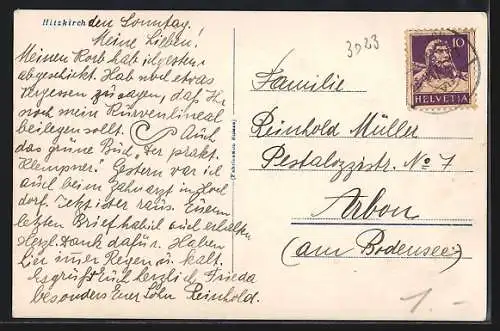 Hitzkirch den Sonntag.
Meine Lieben!
Meinen Korb hab ich gestern
abgeschickt. Hab noch etwas
vergessen zu sagen, daß Ihr
noch mein Kurvenlineal
beilegen sollt. Auch
das grüne Buch, "Der prakt.
Klempner". Gestern war ich
auch beim Zahnarzt in Hoch
dorf. Jetzt ist er raus. Euern
letzten Brief hab ich auch erhalten
Herzl. Dank dafür. Haben
hier immer Regen u. kalt.
Es grüßt Euch herzlich Frieda
besonders Euer Sohn Reinhold.
3D23
10
HELVETIA
Familie
Reinhold Müller
Pestalozzistr. No 7
Arbon
(am Bodensee)
1.-